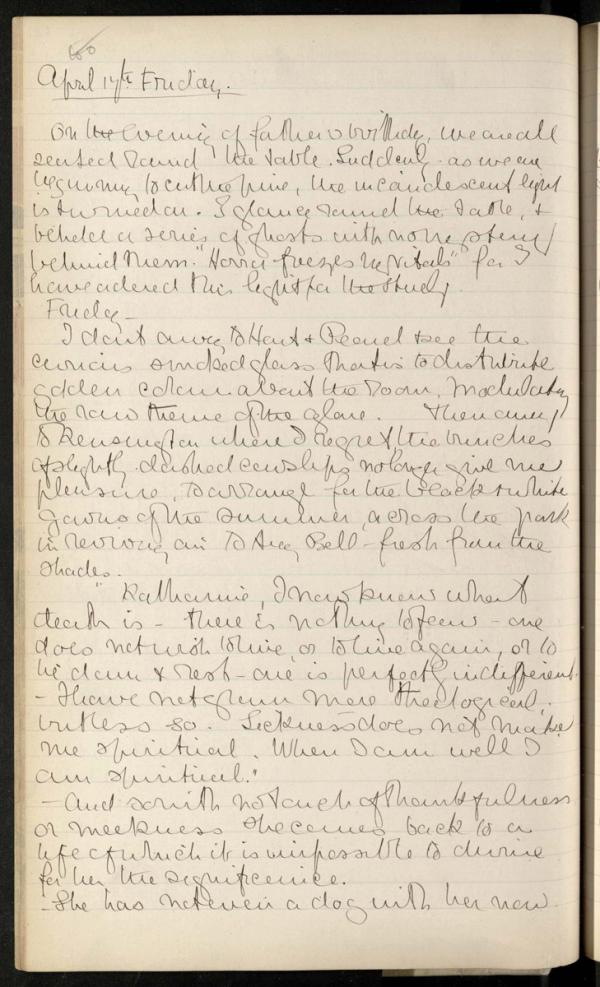 60
April 17th Friday.
On the Evening of father's birthday, we are all
seated round the table. Suddenly as we are
beginning to cut the pine, the incandescent light
is turned on. I glance round the table, &
behold a series of ghosts with no
behind them. "Horror freezes my vitals" for I
have ordered this light for the study.
Friday –
I dart away to Hart & Peard & see the
curious smoked glass that is to distribute
golden colour about the room, modulating
the raw theme of the glare. Then away
to Kensington where I regret the bunches
of slightly dashed cowslips no longer give me
pleasure, to arrange for the black & white
gowns of the summer, across the park
in reviving air to Amy Bell – fresh from the
shades.
"Katharine, I now know what
death is – there is nothing to fear – one
does not wish to live, or to live again, or to
lie down & rest – one is perfectly indifferent.
– I have not grown more theological,
but less so. Sickness does not make
me spiritual. When I am well I
am spiritual."
– And so with no touch of thankfulness
or meekness she comes back to a
life of which it is impossible to divine
for her the significance.
– She has not even a dog with her now.